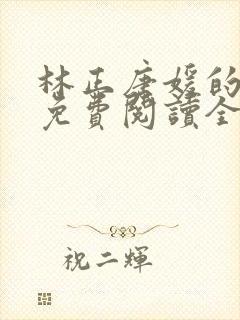 林正唐媛的
免費閱讀全
祝二輝